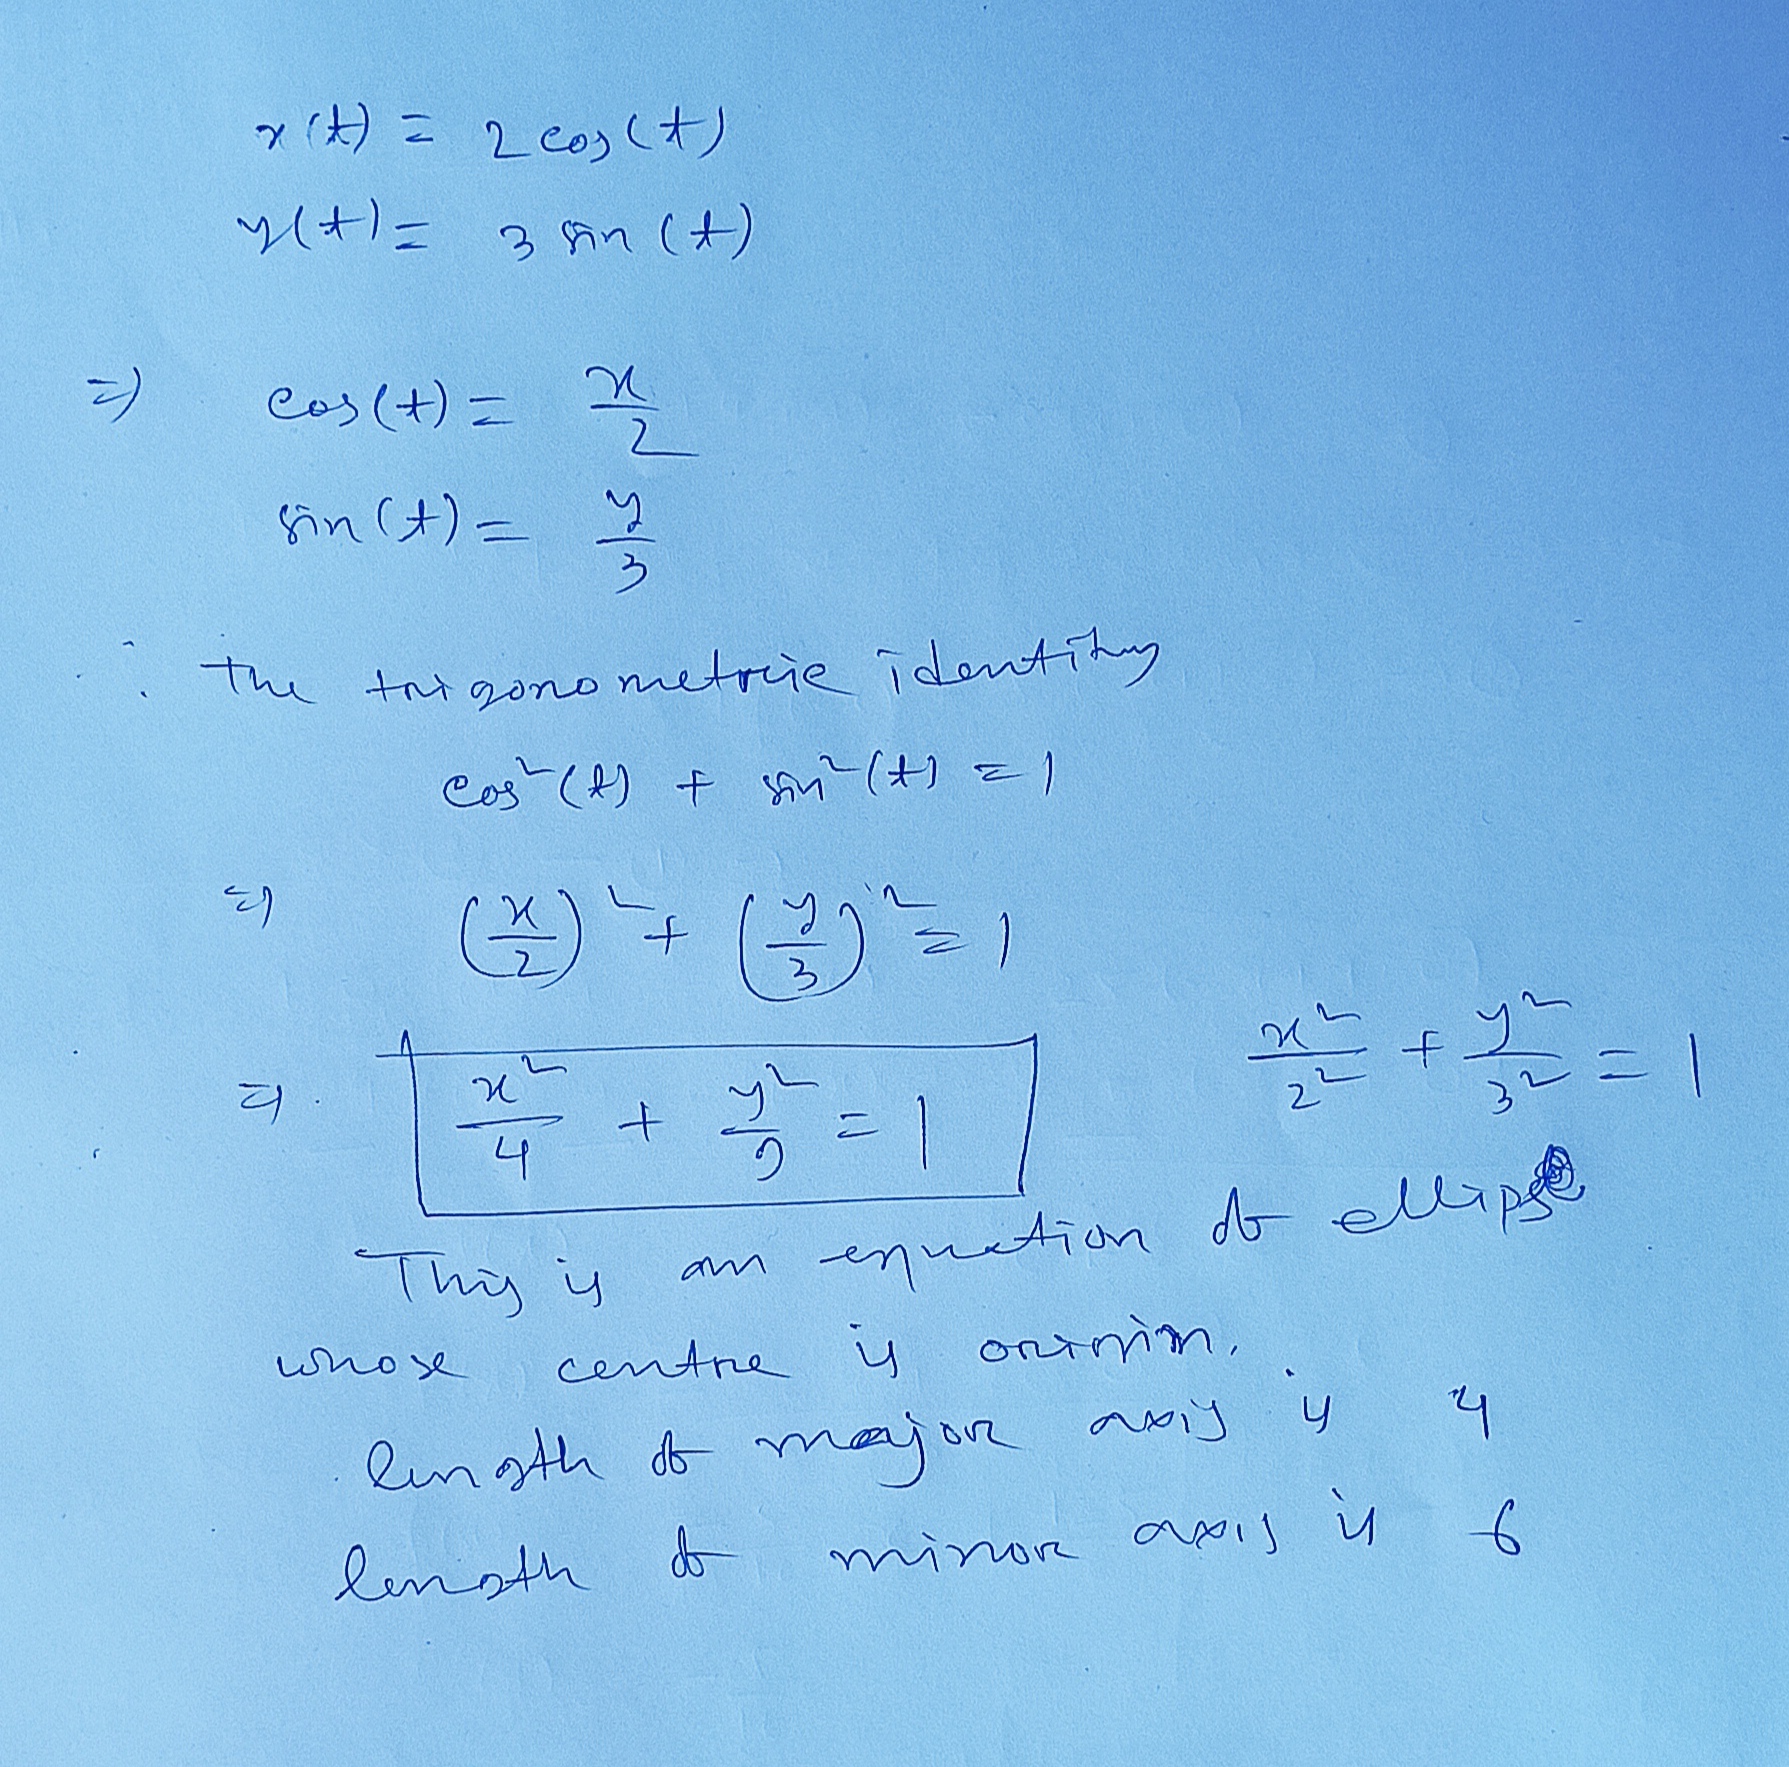 x(t) = 2 cos(t)
y(t) = 3 sin(t)
⇒ cos(t) = x/2
sin(t) = y/3
∴ The trigonometric identity
cos²(t) + sin²(t) = 1
⇒ (x/2)² + (y/3)² = 1
⇒ x²/4 + y²/9 = 1
x²/2² + y²/3² = 1
This is an equation of ellipse
whose centre is origin.
length of major axis is 4
length of minor axis is 6